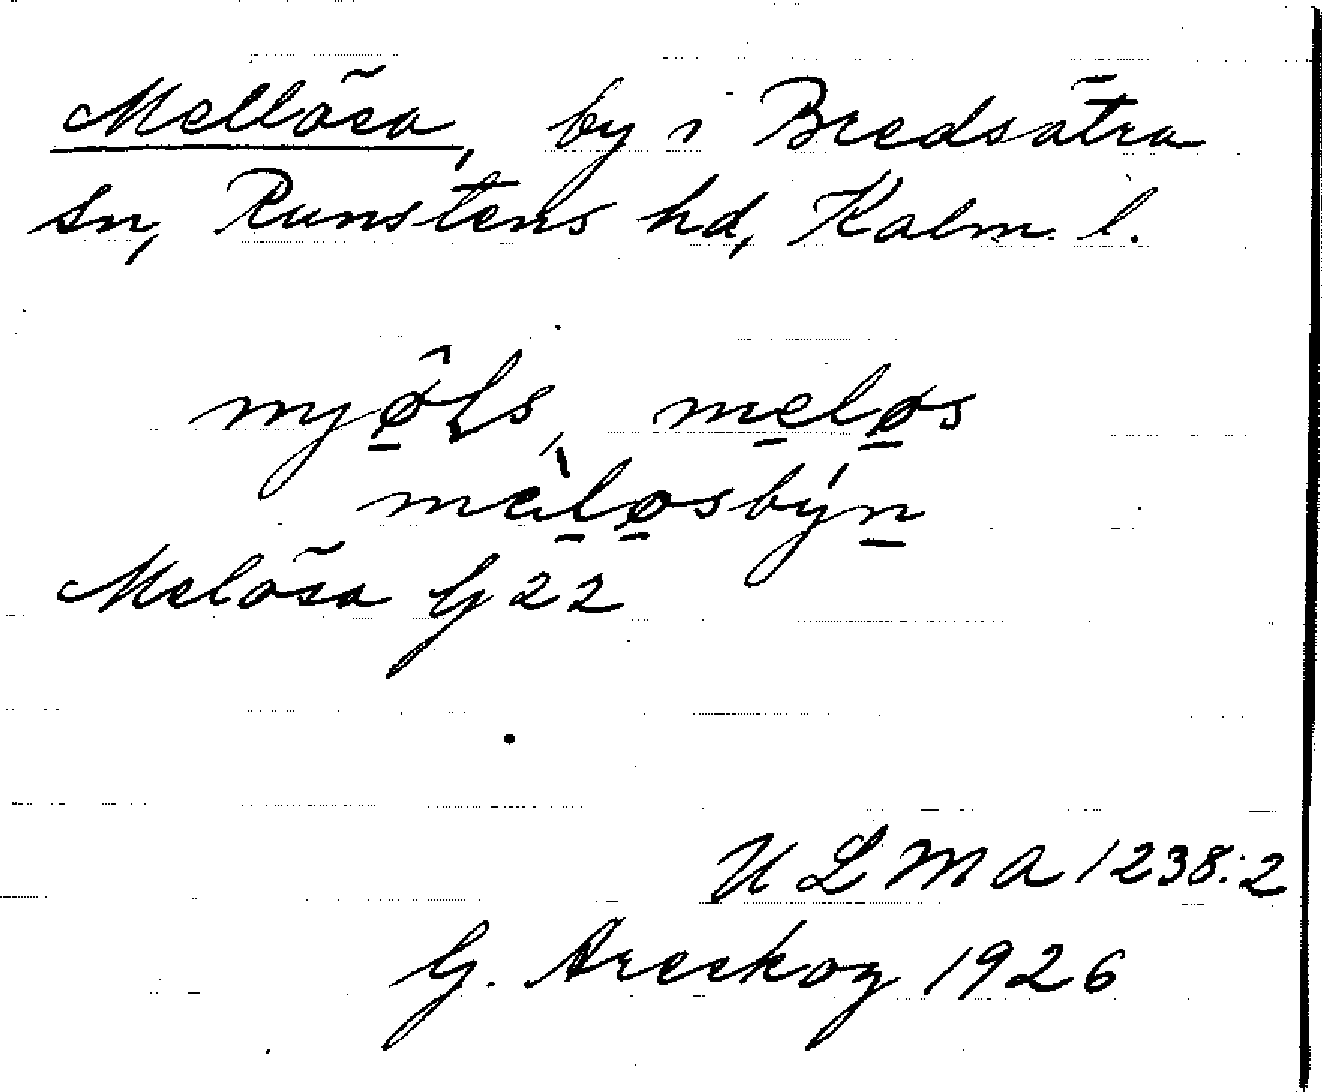 Mellösa, by i Bredsätra
sn, Runstens hd, Kalm. l.
myø̂ls, meløs
mèløsbýn
Melösa G 22
ULMA 1238:2
G. Areskog 1926